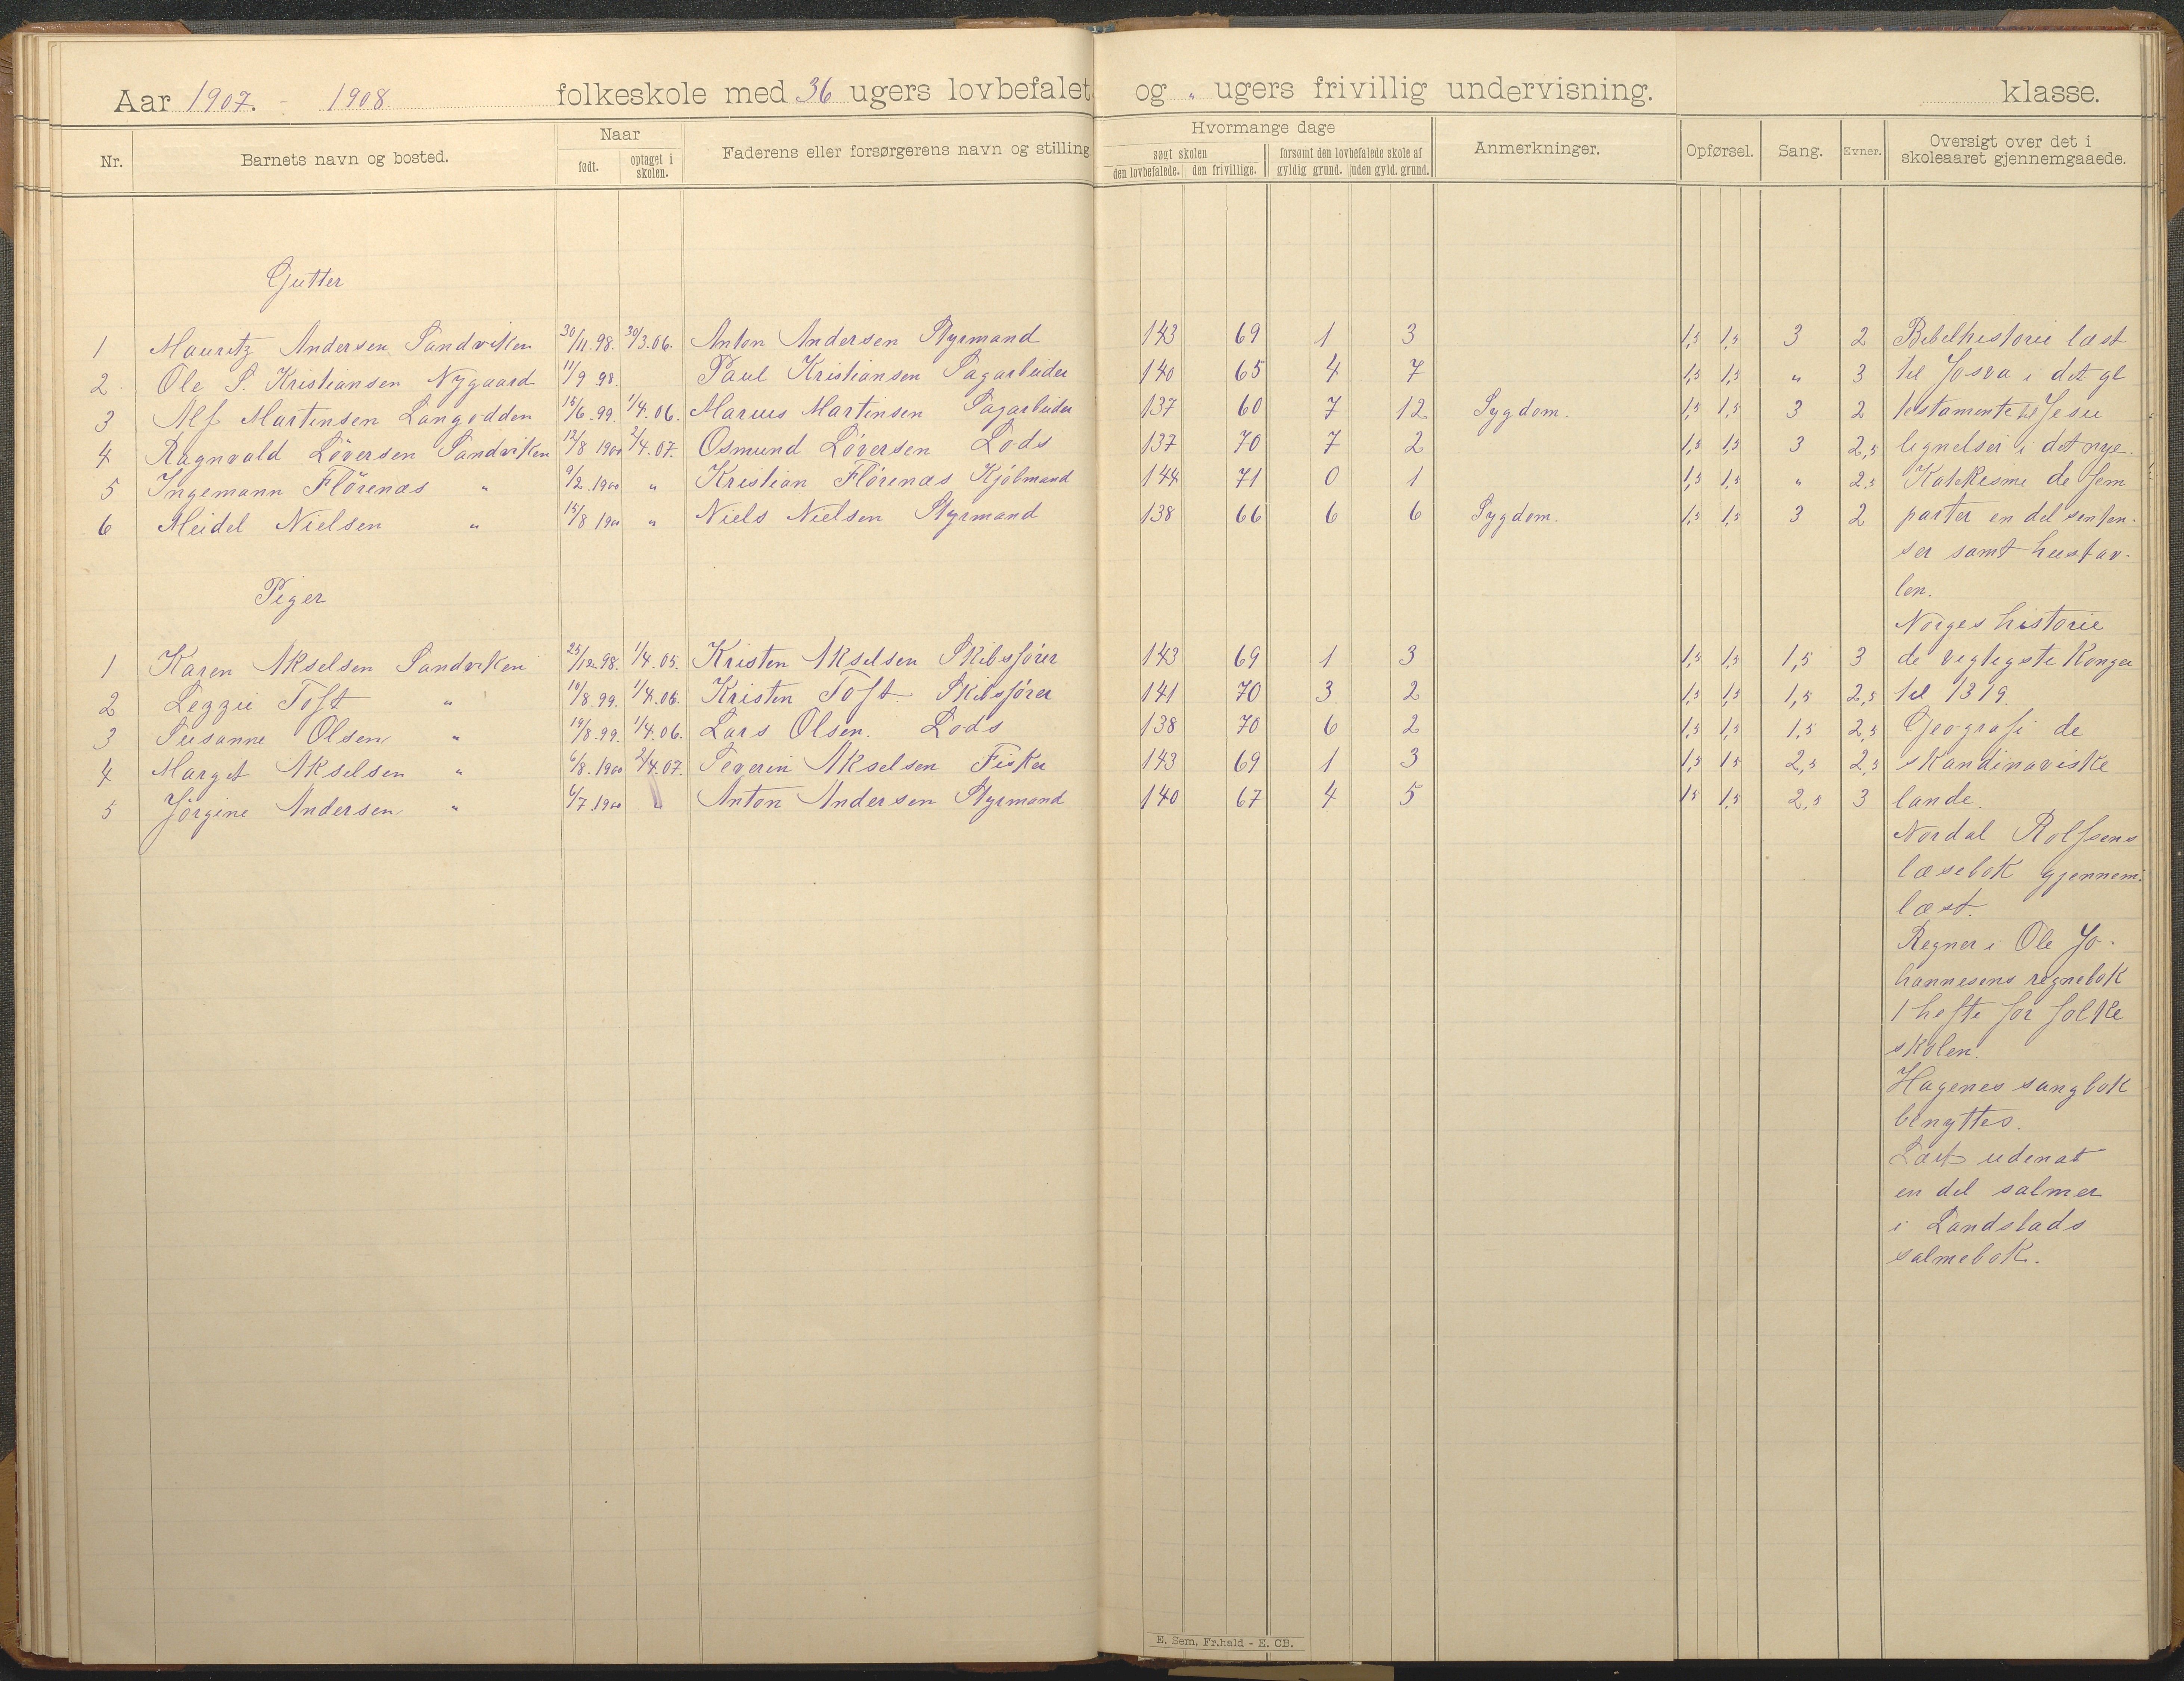 Aar 1907. - 1908 folkeskole med 36 ugers lovbefalet og „ ugers frivillig undervisning. klasse.
Nr. Barnets navn og bosted. Naar født. optaget i skolen. Faderens eller forsørgerens navn og stilling Hvormange dage søgt skolen den lovbefalede. den frivillige. forsømt den lovbefalede skole af gyldig grund. uden gyld. grund. Anmerkninger. Opførsel. Sang. Evner. Oversigt over det i skoleaaret gjennemgaaede.
Gutter
1 Mauritz Andersen Sandviken 30/11.98. 30/3.06. Anton Andersen Styrmand 143 69 1 3 1,5 1,5 3 2 Bibelhistorie læst
2 Ole S. Kristiansen Nygaard 11/9 98. Paul Kristiansen Sagarbeider 140 65 4 7 1,5 1,5 „ 3 til Josva i det gl
3 Alf Martinsen Langodden 15/6.99. 1/4.06. Marius Martinsen Sagarbeider 137 60 7 12 Sygdom. 1,5 1,5 3 2 testamente til Jesu
4 Ragnvald Løversen Sandviken 12/8 1900 2/4.07. Osmund Løversen Lods 137 70 7 2 1,5 1,5 3 2,5 lignelser i det nye.
5 Ingemann Flörenæs „ 9/2.1900 „ Kristian Flörenæs Kjöbmand 144 71 0 1 1,5 1,5 „ 2,5 Katekisme de fem
6 Meidel Nielsen „ 15/8 1900 „ Niels Nielsen Styrmand 138 66 6 6 Sygdom. 1,5 1,5 3 2 parter en del senten-
ser samt hustav-
len.
Piger
Norges historie
1 Karen Akselsen Sandviken 25/12.98. 1/4.05. Kristen Akselsen Skibsfører 143 69 1 3 1,5 1,5 1,5 3 de vigtigste Konger
2 Lezzie Toft „ 10/8.99. 1/4.06. Kristen Toft. Skibsfører 141 70 3 2 1,5 1,5 1,5 2,5 til 1319.
3 Susanne Olsen „ 19/8.99. 1/4.06. Lars Olsen. Lods 138 70 6 2 1,5 1,5 1,5 2,5 Geografi de
4 Margit Akselsen „ 6/8.1900 2/4.07. Severin Akselsen Fisker 143 69 1 3 1,5 1,5 2,5 2,5 skandinaviske
5 Jörgine Andersen „ 6/7.1900 „ Anton Andersen Styrmand 140 67 4 5 1,5 1,5 2,5 3 lande.
Nordal Rolfsens
læsebok gjennem-
læst.
Regner i Ole Jo-
hannesens regnebok
1 hefte for folke
skolen.
Hagenes sangbok
benyttes.
Lært udenat
en del salmer
i Landstads
salmebok.
E. Sem, Fr.hald - E. CB.